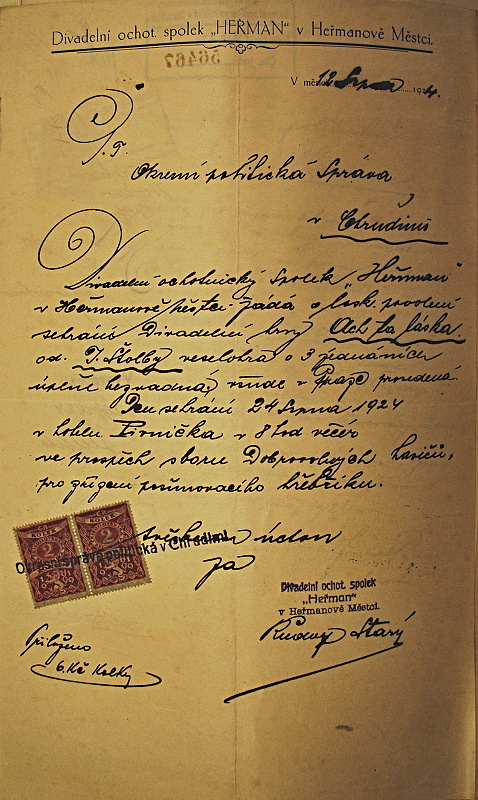 Divadelní ochot. spolek „HEŘMAN“ v Heřmanově Městci.
56467
V měst 12 Srpna 1924.
P. T.
Okresní politická Správa
v Chrudimi
Divadelní ochotnický Spolek „Heřman“
v Heřmanově Městci žádá o lask. povolení
sehrání Divadelní hry Ach ta láska.
od. J. Štolby veselohra o 3 jednáních
úplně bezvadná, všude v Praze provedená.
Den sehrání 24 Srpna 1924
v hotelu Pivnička v 8 hod večér
ve prospěch sboru Dobrovolných hasičů,
pro zřízení posunovacího žebříku.
úctou
za
KOLEK
2
KOLEK
2
Okresní správa politická v Chrudimi
Divadelní ochot. spolek
„Heřman“
v Heřmanově Městci.
Starý
Přiloženo
6. Kč Kolky